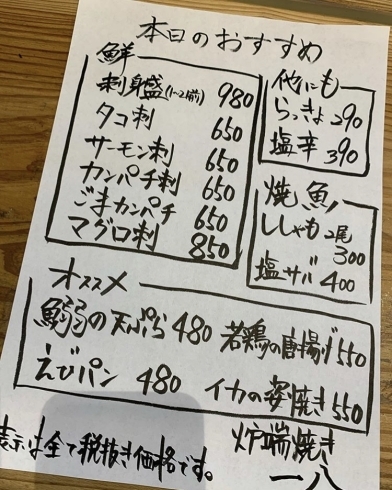 本日のおすすめ
鮮
刺身盛(1~2人前) 980
タコ刺 650
サーモン刺 650
カンパチ刺 650
ごまカンパチ 650
マグロ刺 850
他にも
らっきょ 290
塩辛 390
焼魚
ししゃも 2尾 300
塩サバ 400
オススメ
鰯の天ぷら 480
若鶏の唐揚げ 550
えびパン 480
イカの姿焼き 550
表示は全て税抜き価格です。
炉端焼き
一八